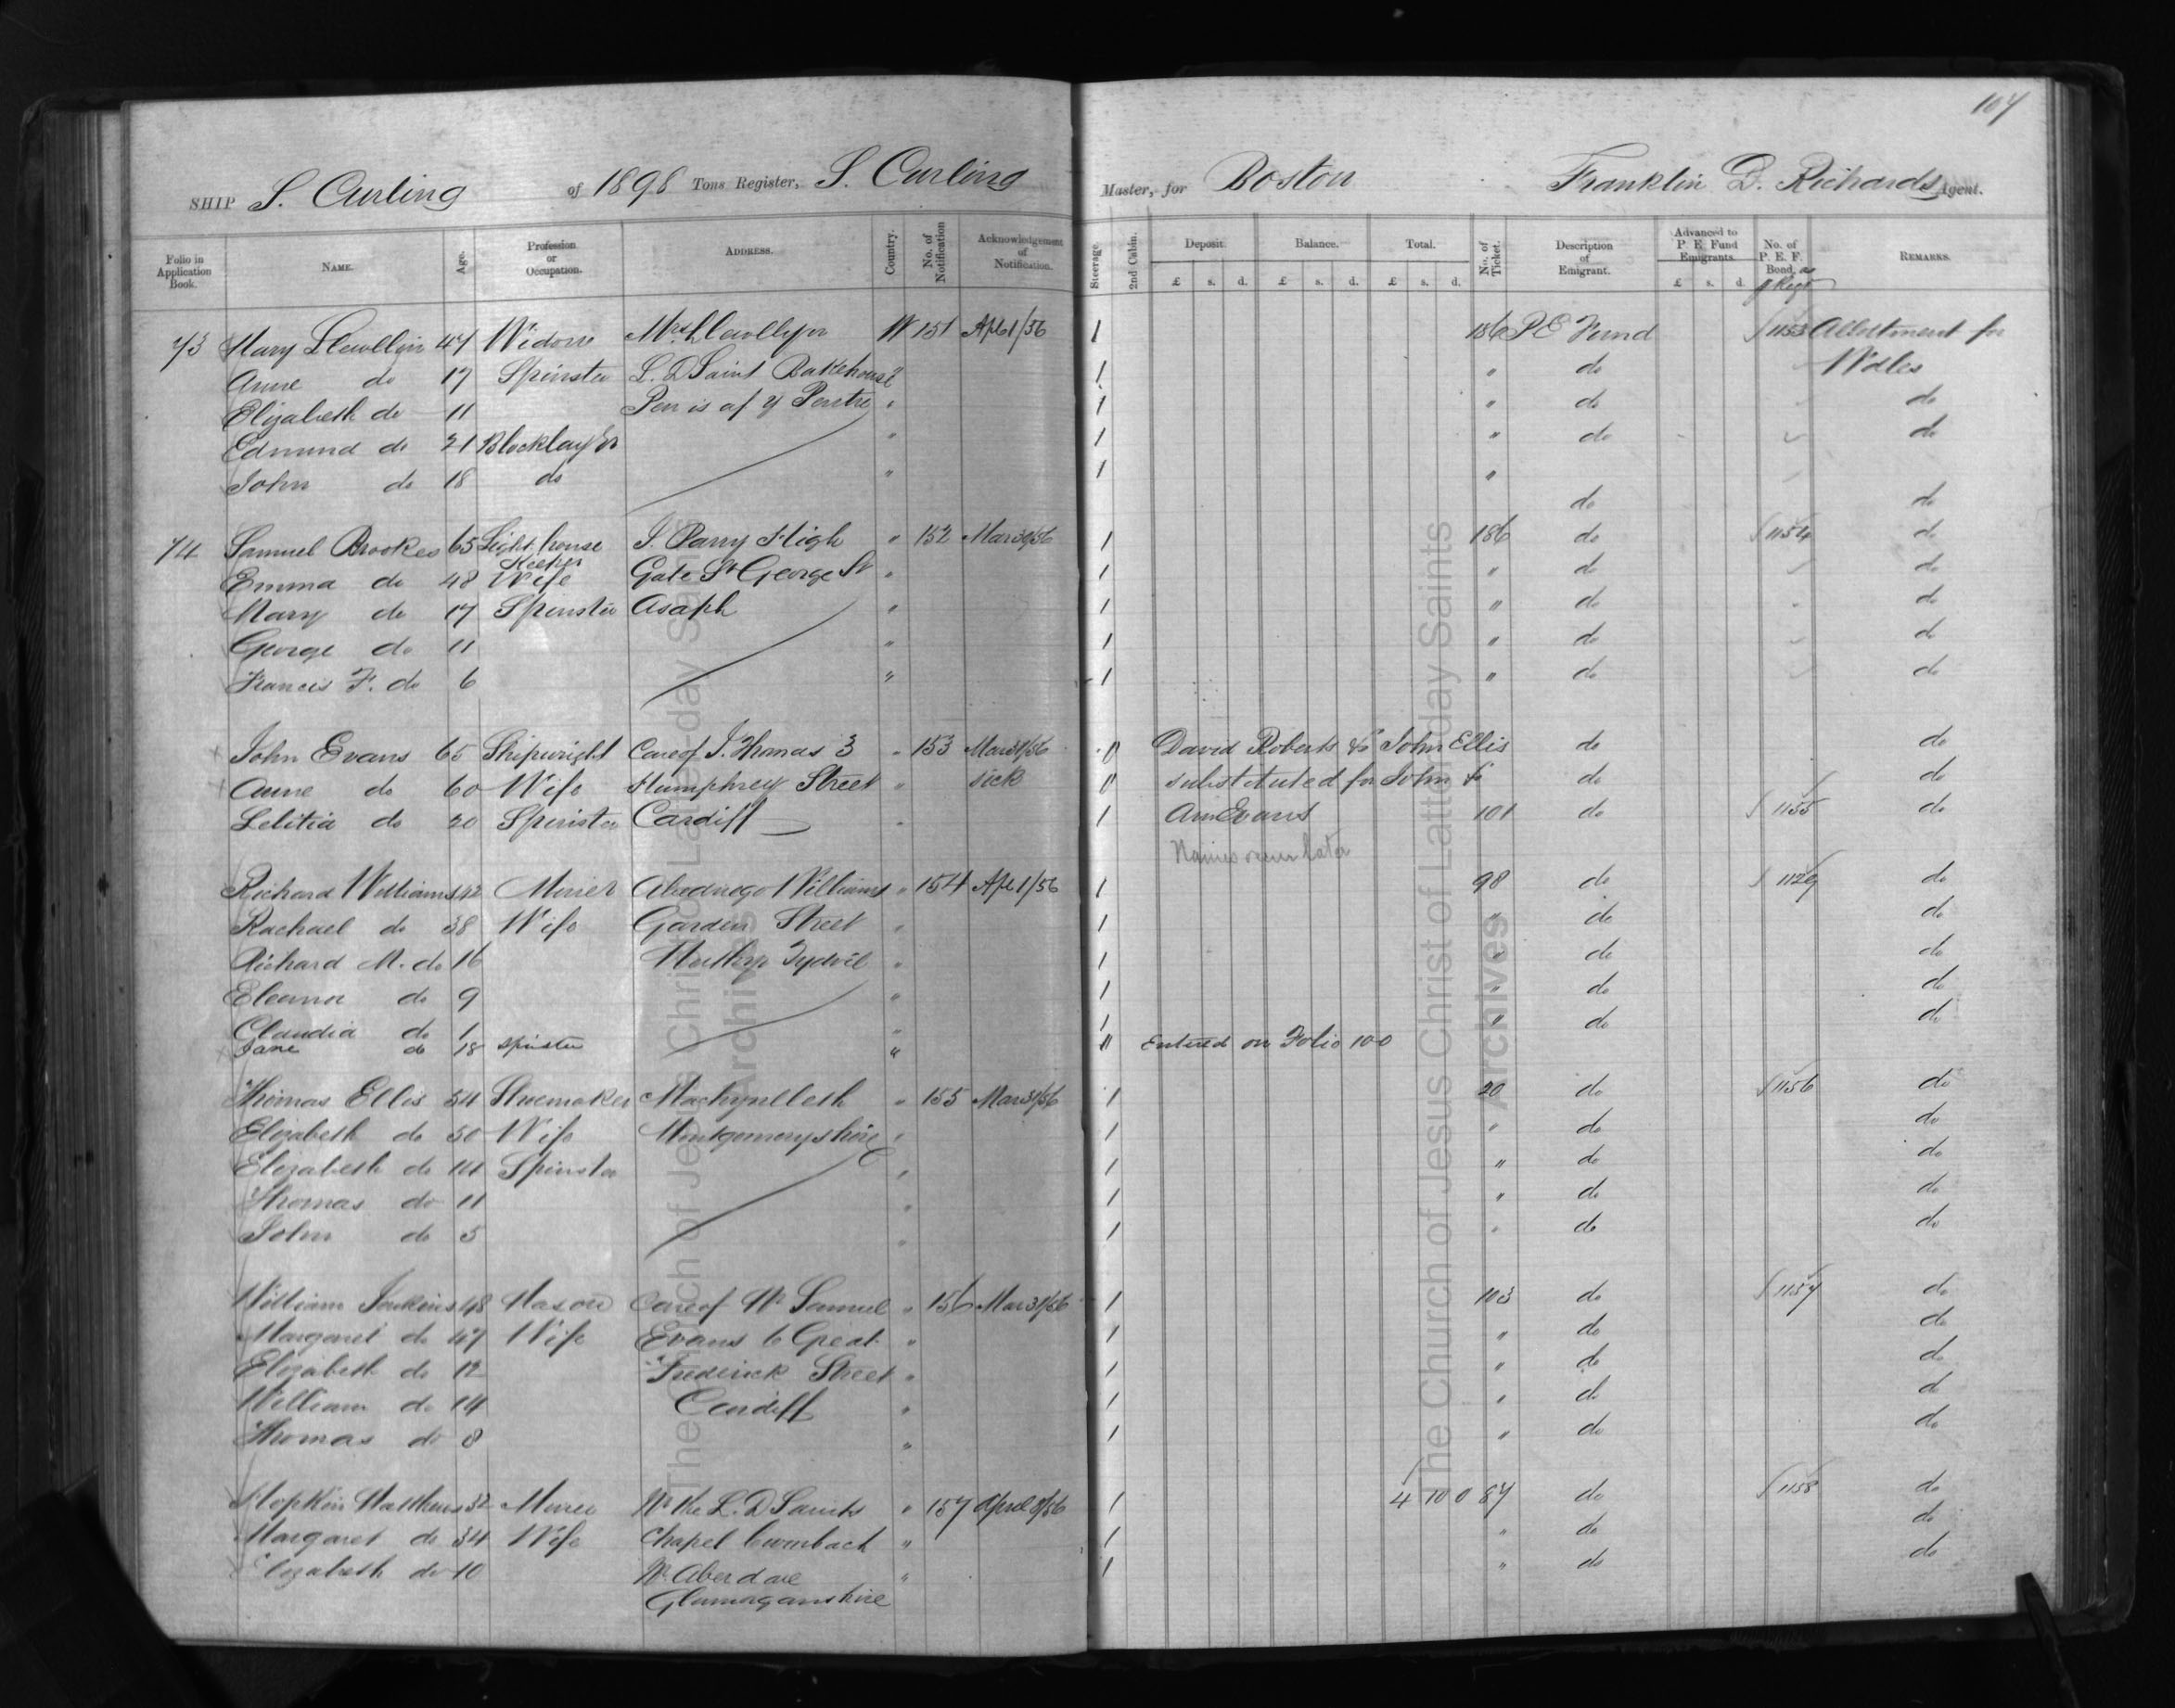 107
SHIP S. Curling of 1898 Tons Register, S. Curling Master, for Boston Franklin D. Richards Agent.
Folio in Application Book. NAME. Age. Profession or Occupation. ADDRESS. Country. No. of Notification Acknowledgement of Notification. Steerage. 2nd Cabin. Deposit. Balance. Total. No. of Ticket. Description of Emigrant. Advanced to P. E. Fund Emigrants. No. of P. E. F. Bond, REMARKS.
£ s. d. £ s. d. £ s. d. £ s. d.
73 Mary Llewellyn 47 Widow Mrs Llewellyn W 151 Apl 1/56 1 156 P E Fund 1153 Allotment for
Anne do 17 Spinster L. D Saint Bakehouse " 1 " do Wales
Elizabeth do 11 Pen is af y Pentre " 1 " do do
Edmund do 21 Blocklayer " 1 " do do
John do 18 do " 1 "
do do
74 Samuel Brookes 65 Light house Keeper J. Parry High " 152 Mar 31/56 1 186 do 1154 do
Emma do 48 Wife Gate St George St " 1 " do do
Mary do 17 Spinster Asaph " 1 " do do
George do 11 " 1 " do do
Francis F. do 6 " 1 " do do
John Evans 65 Shipwright Care of J. Thomas 3 " 153 Mar 31/56 0 David Roberts & John Ellis do do
Anne do 60 Wife Humphrey Street " sick 0 substituted for John & do do
Letitia do 20 Spinster Cardiff " 1 Ann Evans 101 do 1155 do
Names occur later
Richard Williams 42 Miner Abednego Williams " 154 Apl 1/56 1 98 do 1129 do
Rachael do 38 Wife Garden Street " 1 " do do
Richard M. do 16 Merthyr Tydvil " 1 " do do
Eleanor do 9 " 1 " do do
Claudia do 1 " 1 " do do
Jane do 18 spinster " " Entered on Folio 100
Thomas Ellis 54 Shoemaker Machynlleth " 155 Mar 31/56 1 20 do 1156 do
Elizabeth do 50 Wife Montgomeryshire " 1 " do do
Elizabeth do 14 Spinster " 1 " do do
Thomas do 11 " 1 " do do
John do 5 " 1 " do do
William Jenkins 48 Mason Care of Mr Samuel " 156 Mar 31/56 1 103 do 1157 do
Margaret do 47 Wife Evans 6 Great " 1 " do do
Elizabeth do 12 Frederick Street " 1 " do do
William do 14 Cardiff " 1 " do do
Thomas do 8 " 1 " do do
Hopkin Matthews 32 Miner Nr the L. D Saints " 157 April 8/56 1 4 10 0 87 do 1158 do
Margaret do 34 Wife Chapel Cwmbach " 1 " do do
Elizabeth do 10 Nr Aberdare " 1 " do do
Glamorganshire
The Church of Jesus Christ of Latter-day Saints
Archives
The Church of Jesus Christ of Latter-day Saints
Archives